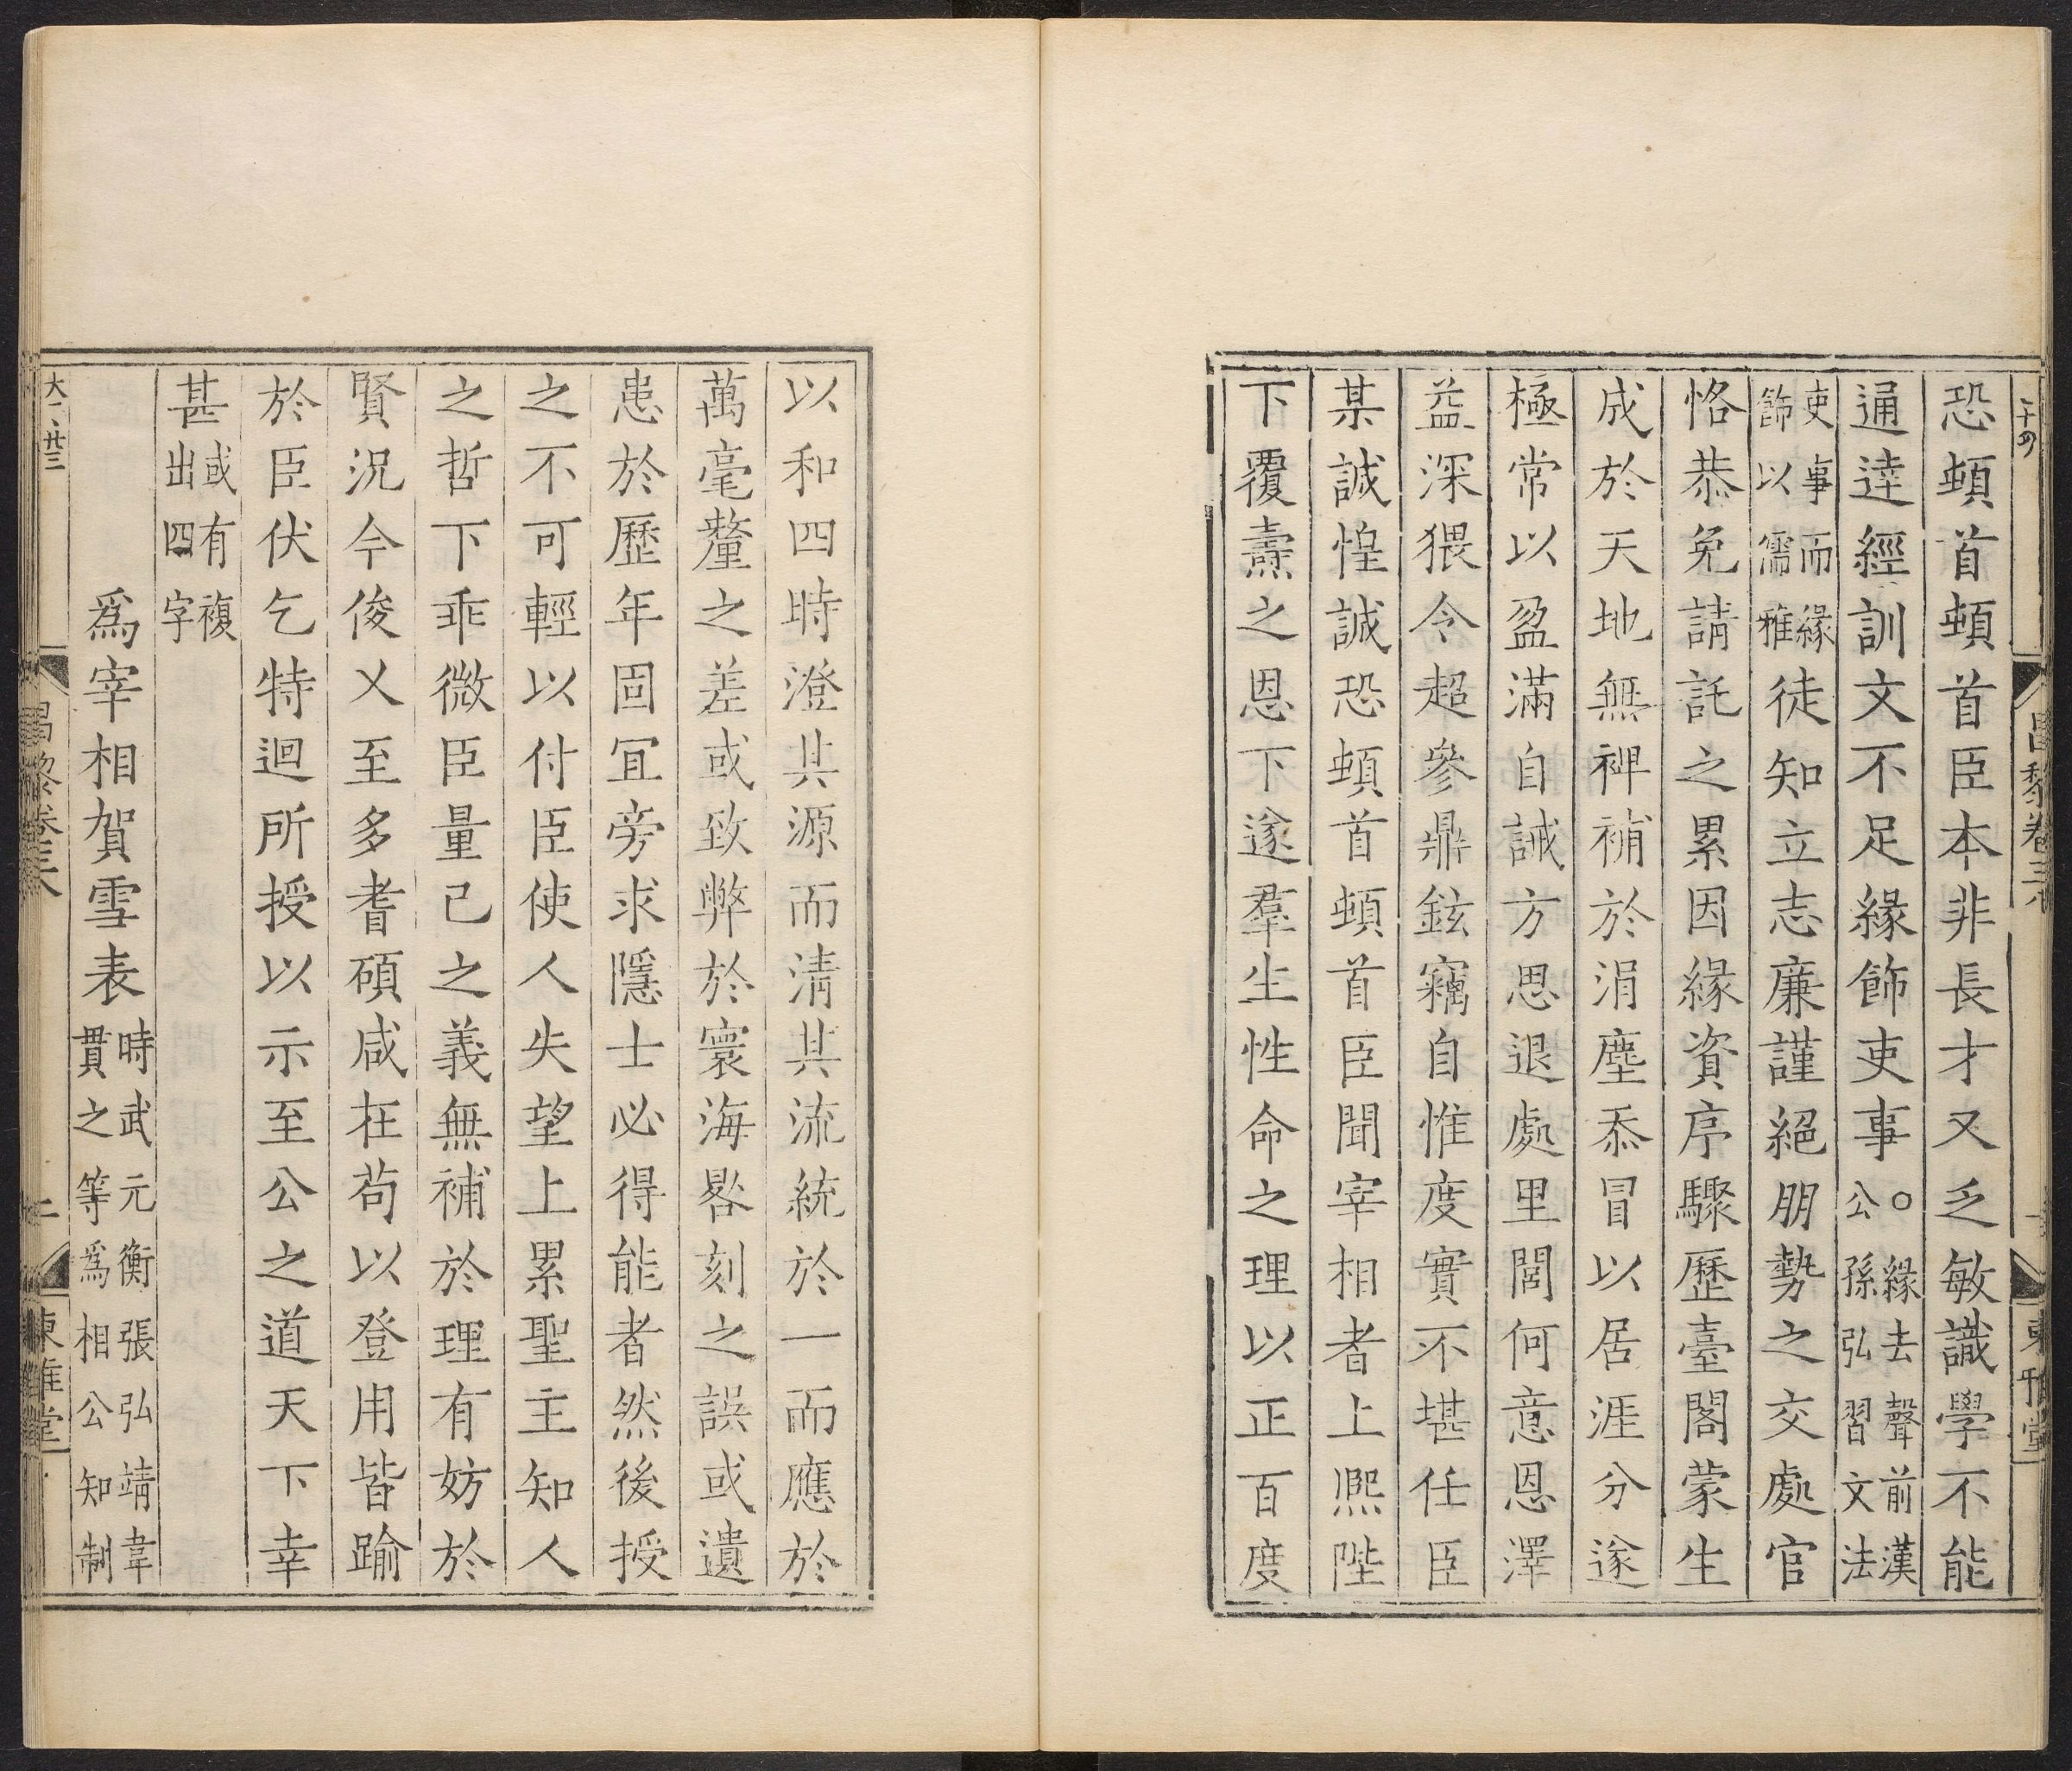 恐頓首頓首臣本非長才又乏敏識學不能
通達經訓文不足緣飾吏事○緣去聲前漢公孫弘習文法
吏事而緣飾以儒雅徒知立志廉謹絕朋勢之交處官
恪恭免請託之累因緣資序驟歷臺閣蒙生
成於天地無裨補於涓塵忝冒以居涯分遂
極常以盈滿自誡方思退處里閭何意恩澤
益深猥令超參鼎鉉竊自惟度實不堪任臣
某誠惶誠恐頓首頓首臣聞宰相者上熙陛
下覆燾之恩下遂羣生性命之理以正百度
以和四時澄其源而清其流統於一而應於
萬毫釐之差或致弊於寰海晷刻之誤或遺
患於歷年固宜旁求隱士必得能者然後授
之不可輕以付臣使人失望上累聖主知人
之哲下乖微臣量己之義無補於理有妨於
賢況今俊乂至多耆碩咸在苟以登用皆踰
於臣伏乞特迴所授以示至公之道天下幸
甚或有複出四字
爲宰相賀雪表時武元衡張弘靖韋貫之等爲相公知制
昌黎卷三八
東雅堂